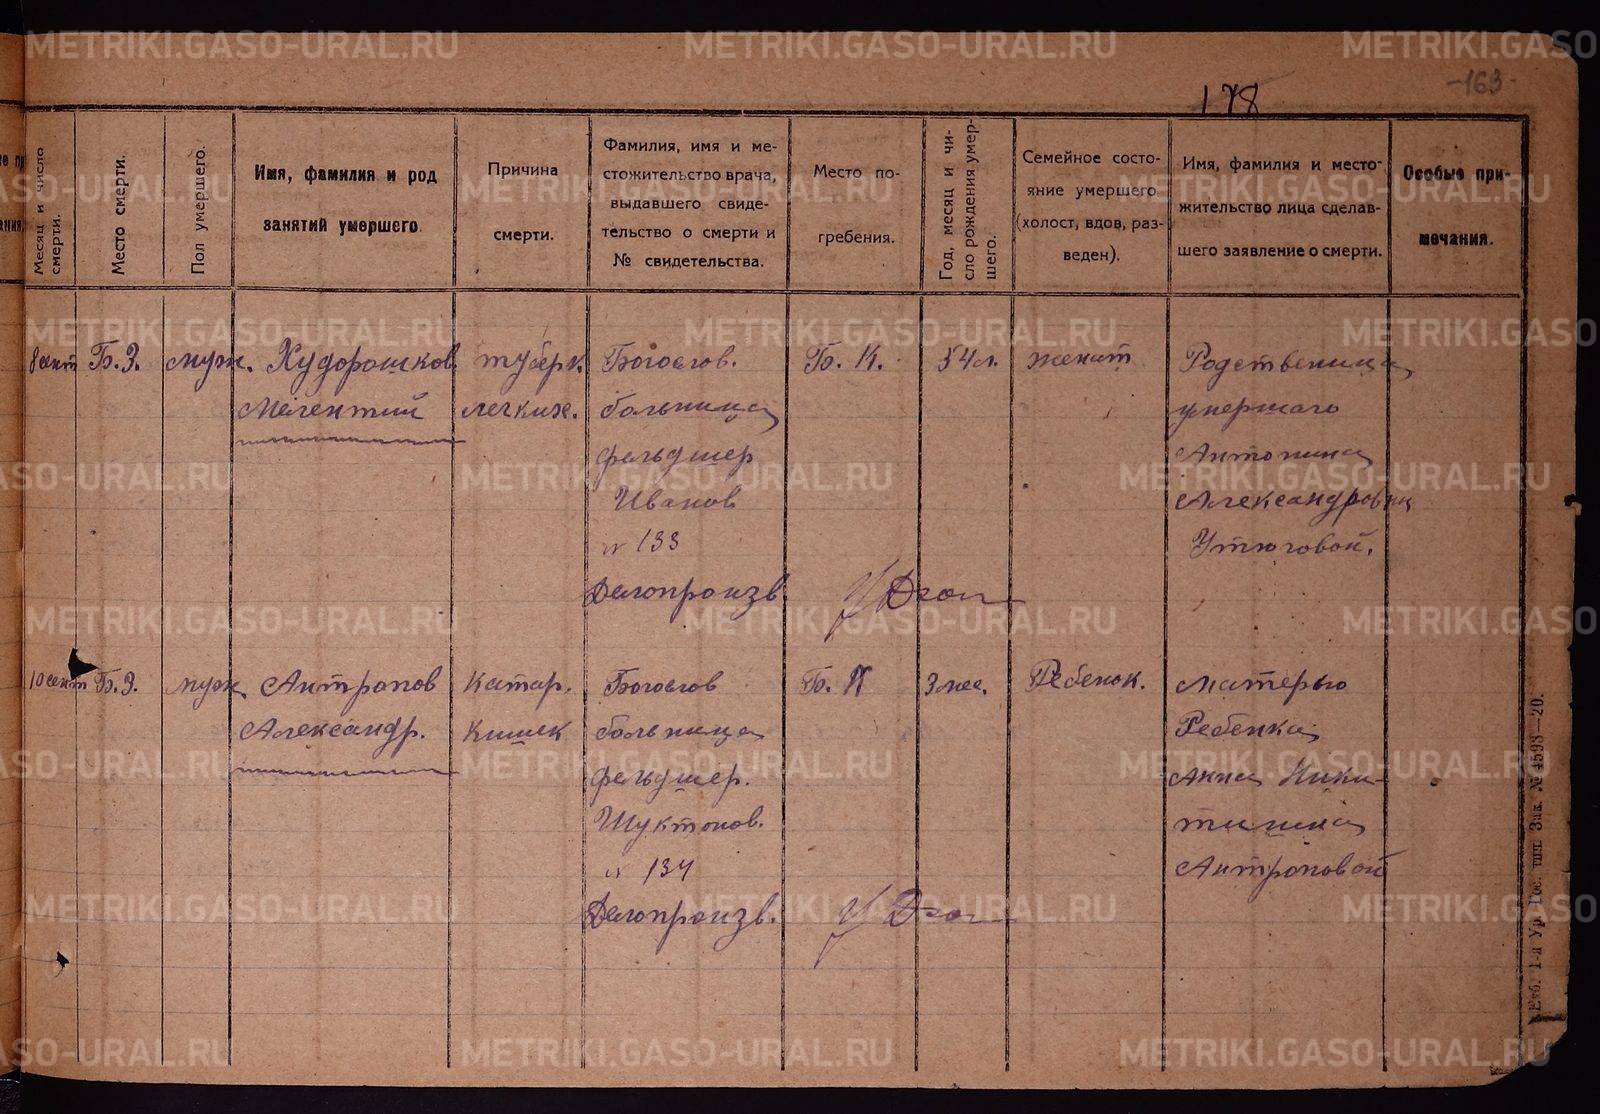 -163-
178
Месяц и число смерти.
Место смерти.
Пол умершего.
Имя, фамилия и род занятий умершего
Причина смерти.
Фамилия, имя и ме-
стожительство врача,
выдавшего свиде-
тельство о смерти и
№ свидетельства.
Место по-
гребения.
Год, месяц и чи-
сло рождения умер-
шего.
Семейное состо-
яние умершего
(холост, вдов, раз-
веден).
Имя, фамилия и место-
жительство лица сделав-
шего заявление о смерти.
Особые при-
мечания.
8 сент
Б.З.
муж.
Худорошков
Мелентий
туберк.
легких.
Богослов.
больница
фельдшер
Иванов
№ 133
Делопроизв.
Б. К.
54 л.
женат
Родственица
умершаго
Антонина
Александровна
Утюговой.
10 сент
Б.З.
муж
Антропов
Александр.
Катар.
Кишек
Богослов
больница
фельдшер.
Шуктомов.
№ 134
Делопроизв.
Б. К
3 мес.
Ребенок.
Матерью
Ребенка
Анна Ники-
тишна
Антроповой
Екб. 1-я Ур. Гос. тип. Зак. № 4593—20.
METRIKI.GASO-URAL.RU